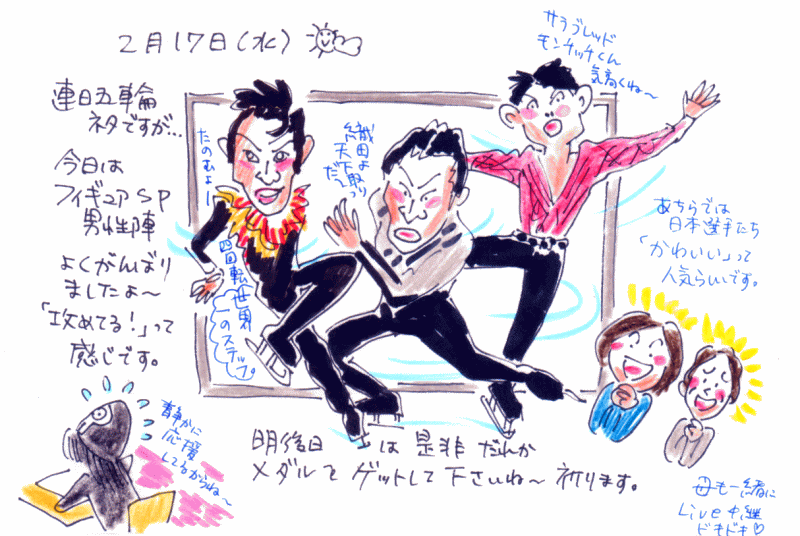 2月17日(水)
連日五輪
ネタですが…
今日は
フィギュアSP
男性陣
よくがんばり
ましたよ〜
「攻めてる!」って
感じです。
たのむよー
四回転世界
一のステップ。
織田よ
天下取り
だ〜っ
サラブレッド
モンチッチくん
気高くね〜
あちらでは
日本選手たち
「かわいい」って
人気らしいです。
静かに
応援
してるからね〜
明後日は是非だれか
メダルをゲットして下さいね〜祈ります。
母も一緒に
Live中継
ドキドキ♡